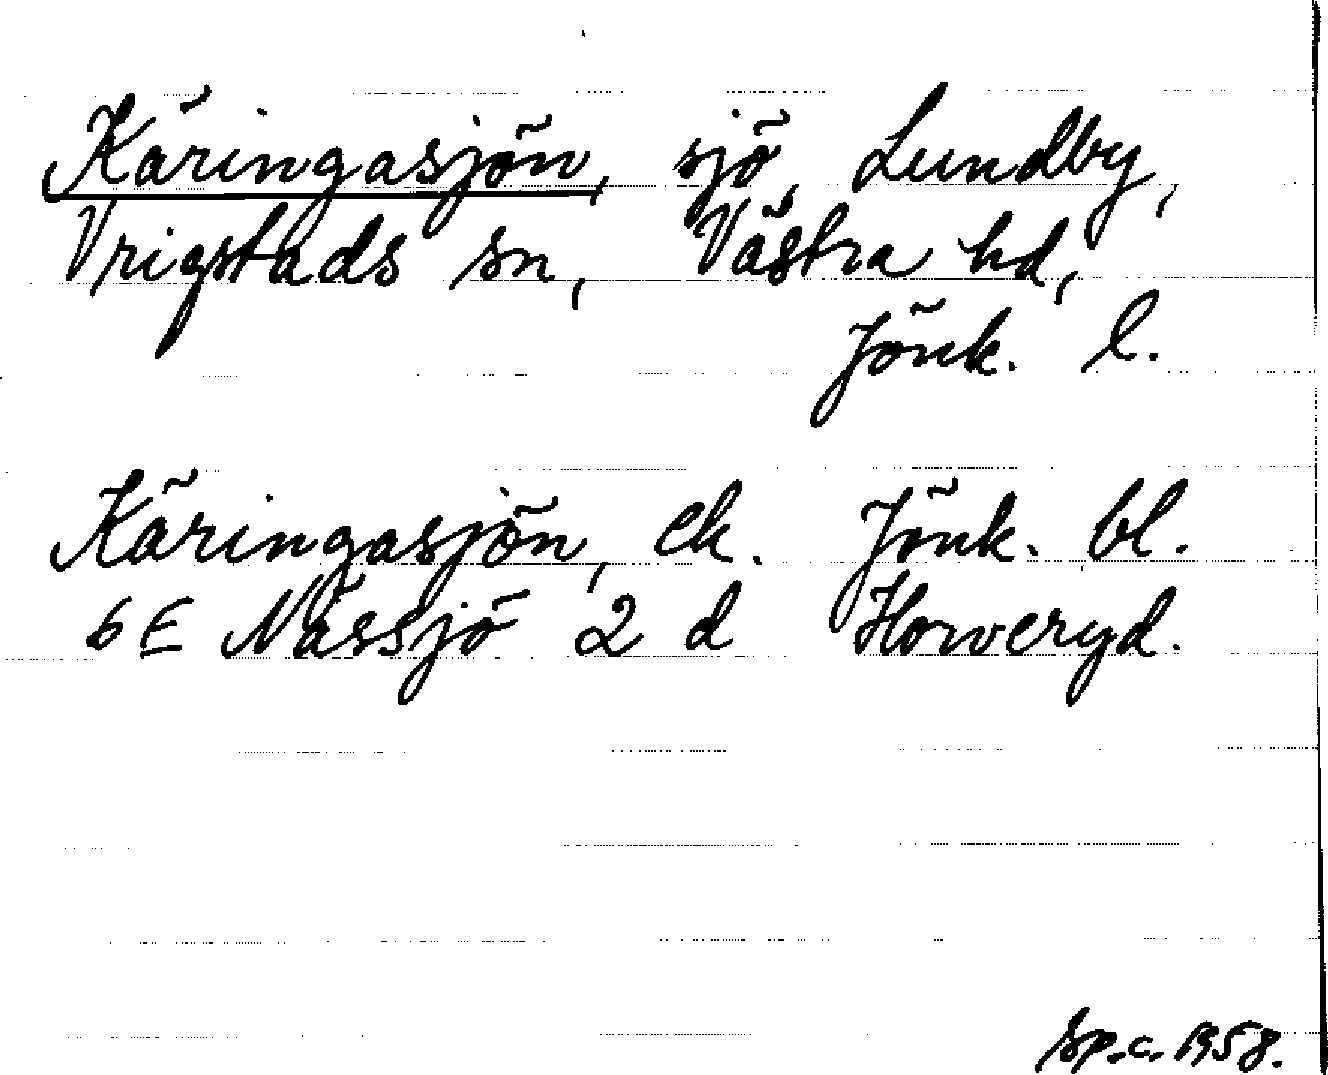 Käringasjön, sjö, Lundby,
Vrigstads sn, Västra hd,
Jönk. l.
Käringasjön, ek. Jönk. bl.
6 E Nässjö 2 d Horveryd.
Sp.c. 1958.